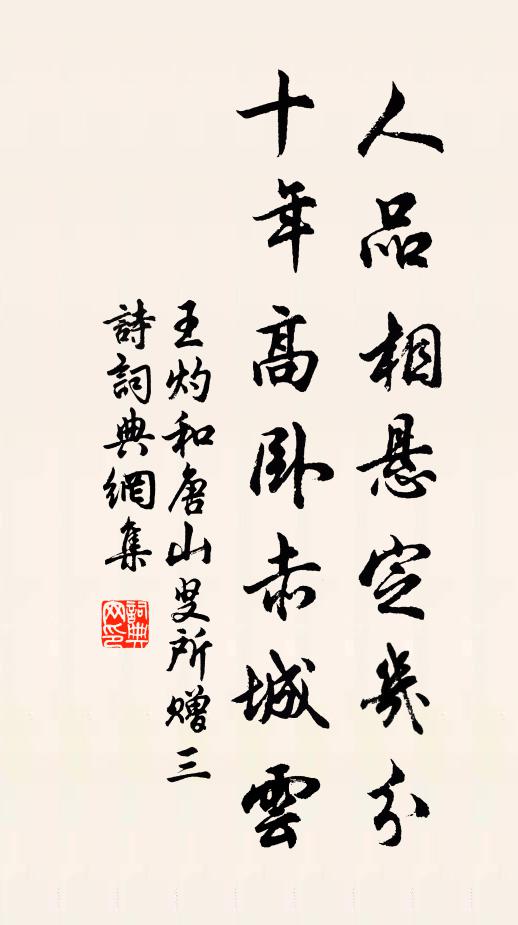 人品相悬定幾分
十年高卧赤城雲
王灼和唐山叟所赠三
詩詞典網集
詞典网印